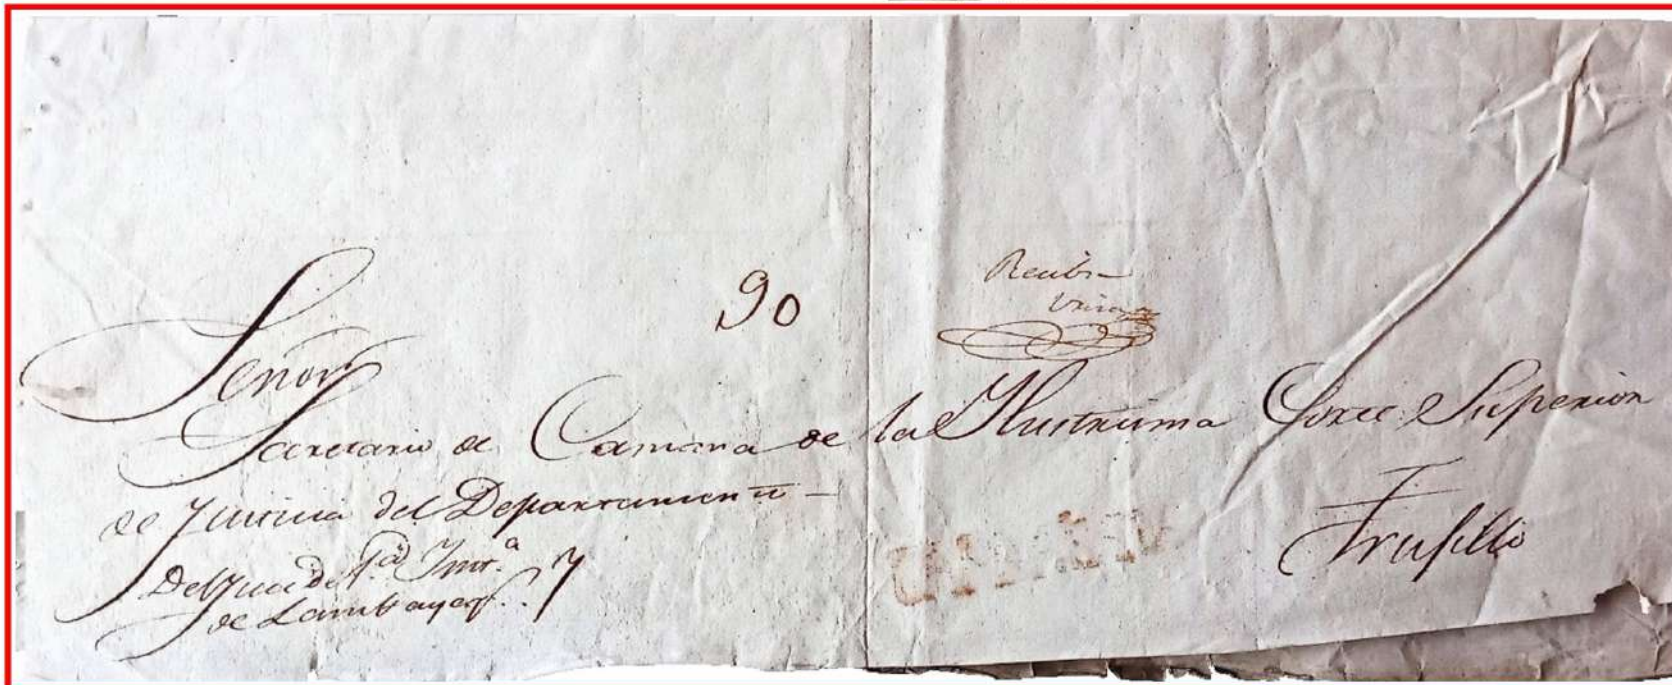 90
Recibi
Señor
Secretario de Camara de la Ilustrisima Corte Superior
de Justicia del Departamento
Trujillo
Del Juez de 1.a Inst.a
de Lambayeq.